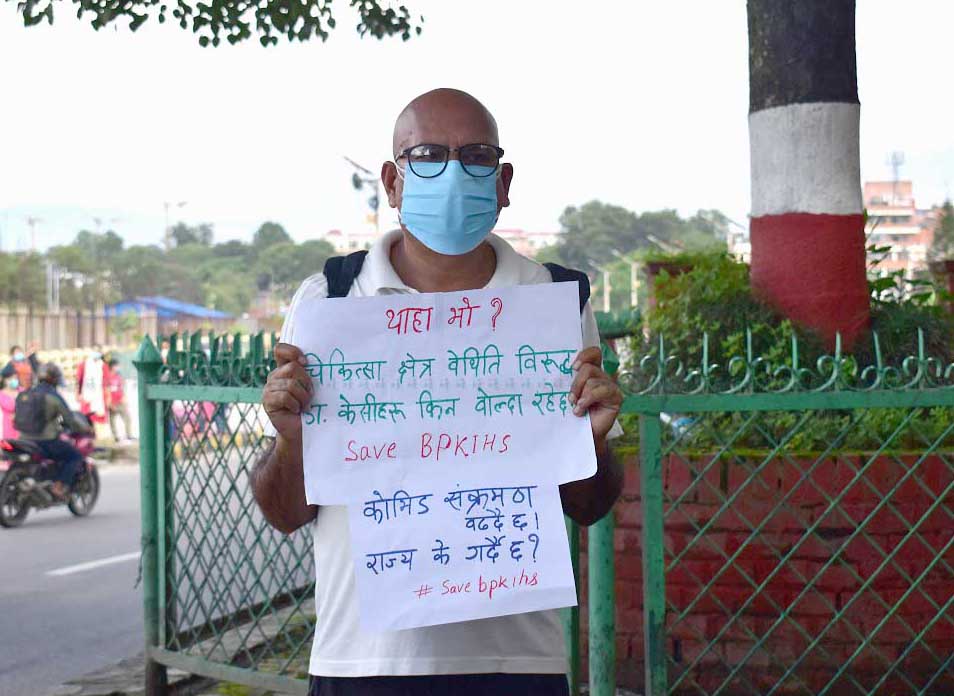 थाहा भो ?
चिकित्सा क्षेत्र वेथिति विरूद्ध
केसीहरू किन बोल्दा रहेछ
Save BPKIHS
कोभिड संक्रमण
बढ्दै छ।
राज्य के गर्दै छ?
# Save bpkihs